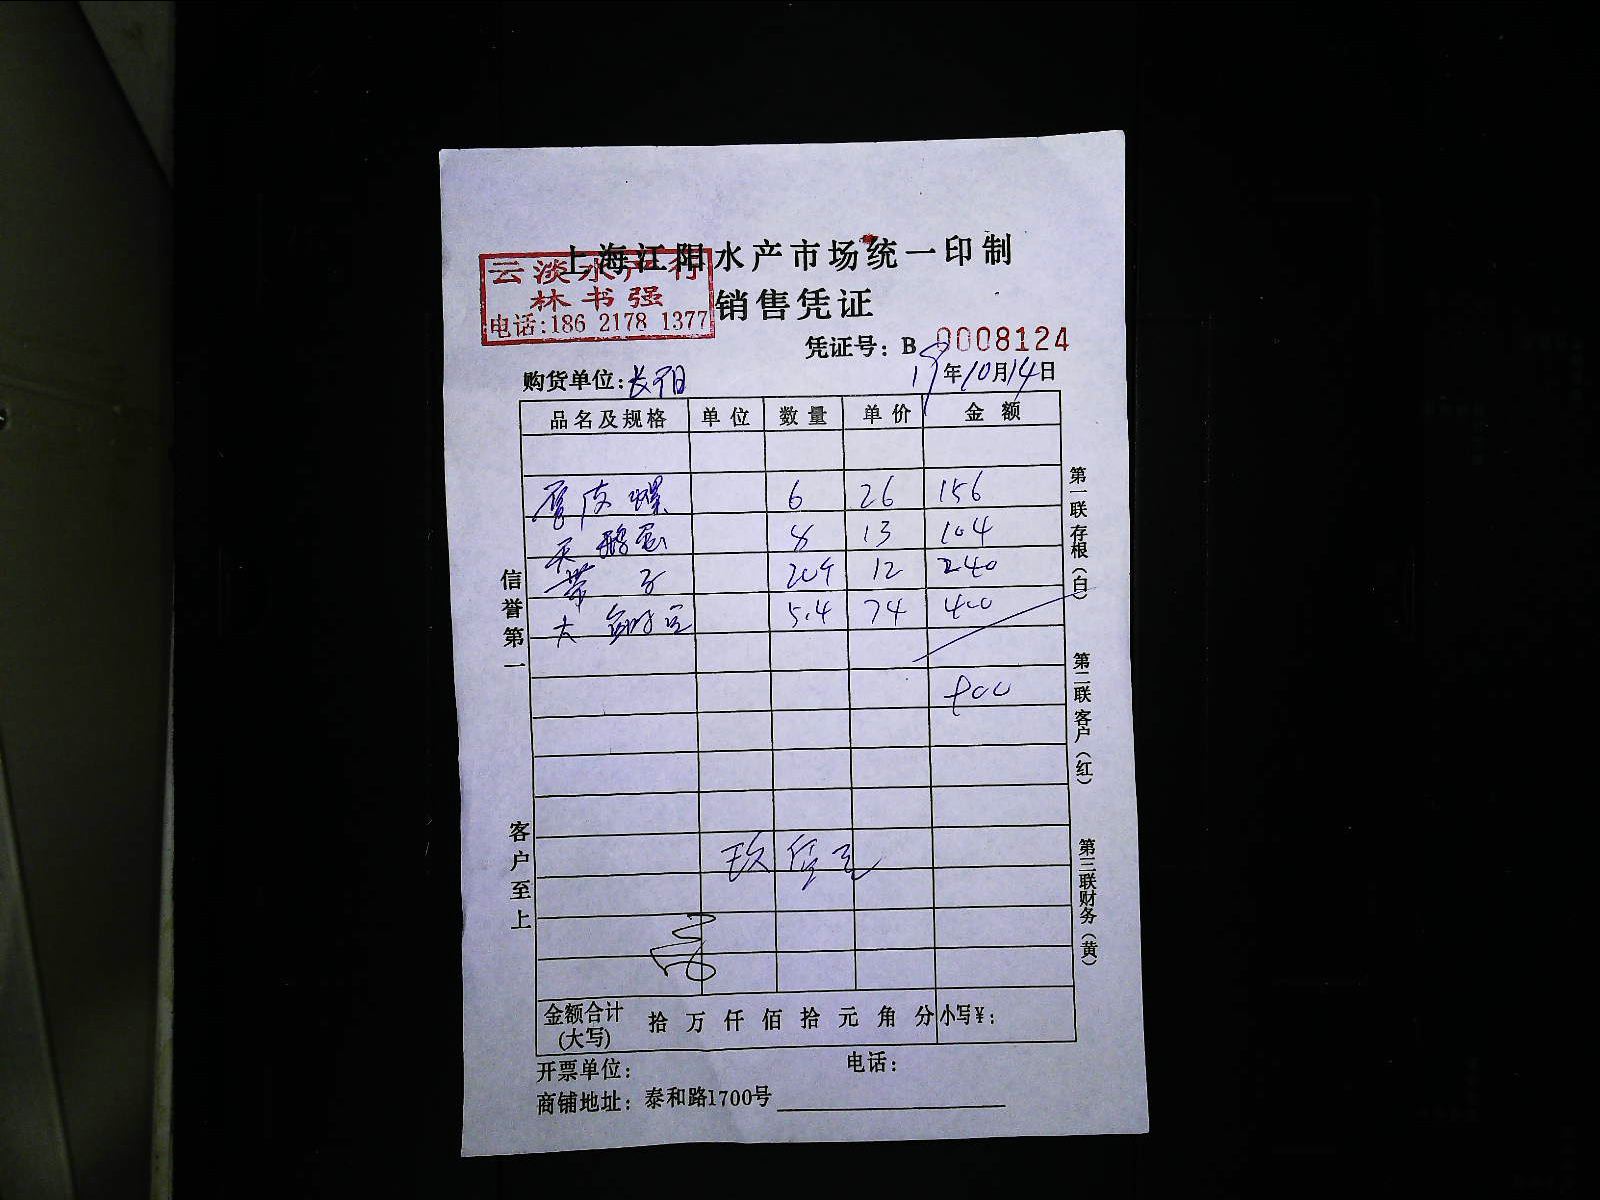 上海江阳水产市场统一印制
云淡水产行
林书强
电话:186 2178 1377
销售凭证
凭证号: B 0008124
购货单位: 长阳 19年10月14日
品名及规格 单位 数量 单价 金额
皮螺 6 26 156
天鹅蛋 8 13 104
带子 20个 12 240
大 5.4 74 400
900
玖佰元
金额合计(大写) 拾 万 仟 佰 拾 元 角 分 小写¥:
开票单位: 电话:
商铺地址: 泰和路1700号
信誉第一
客户至上
第一联存根(白)
第二联客户(红)
第三联财务(黄)